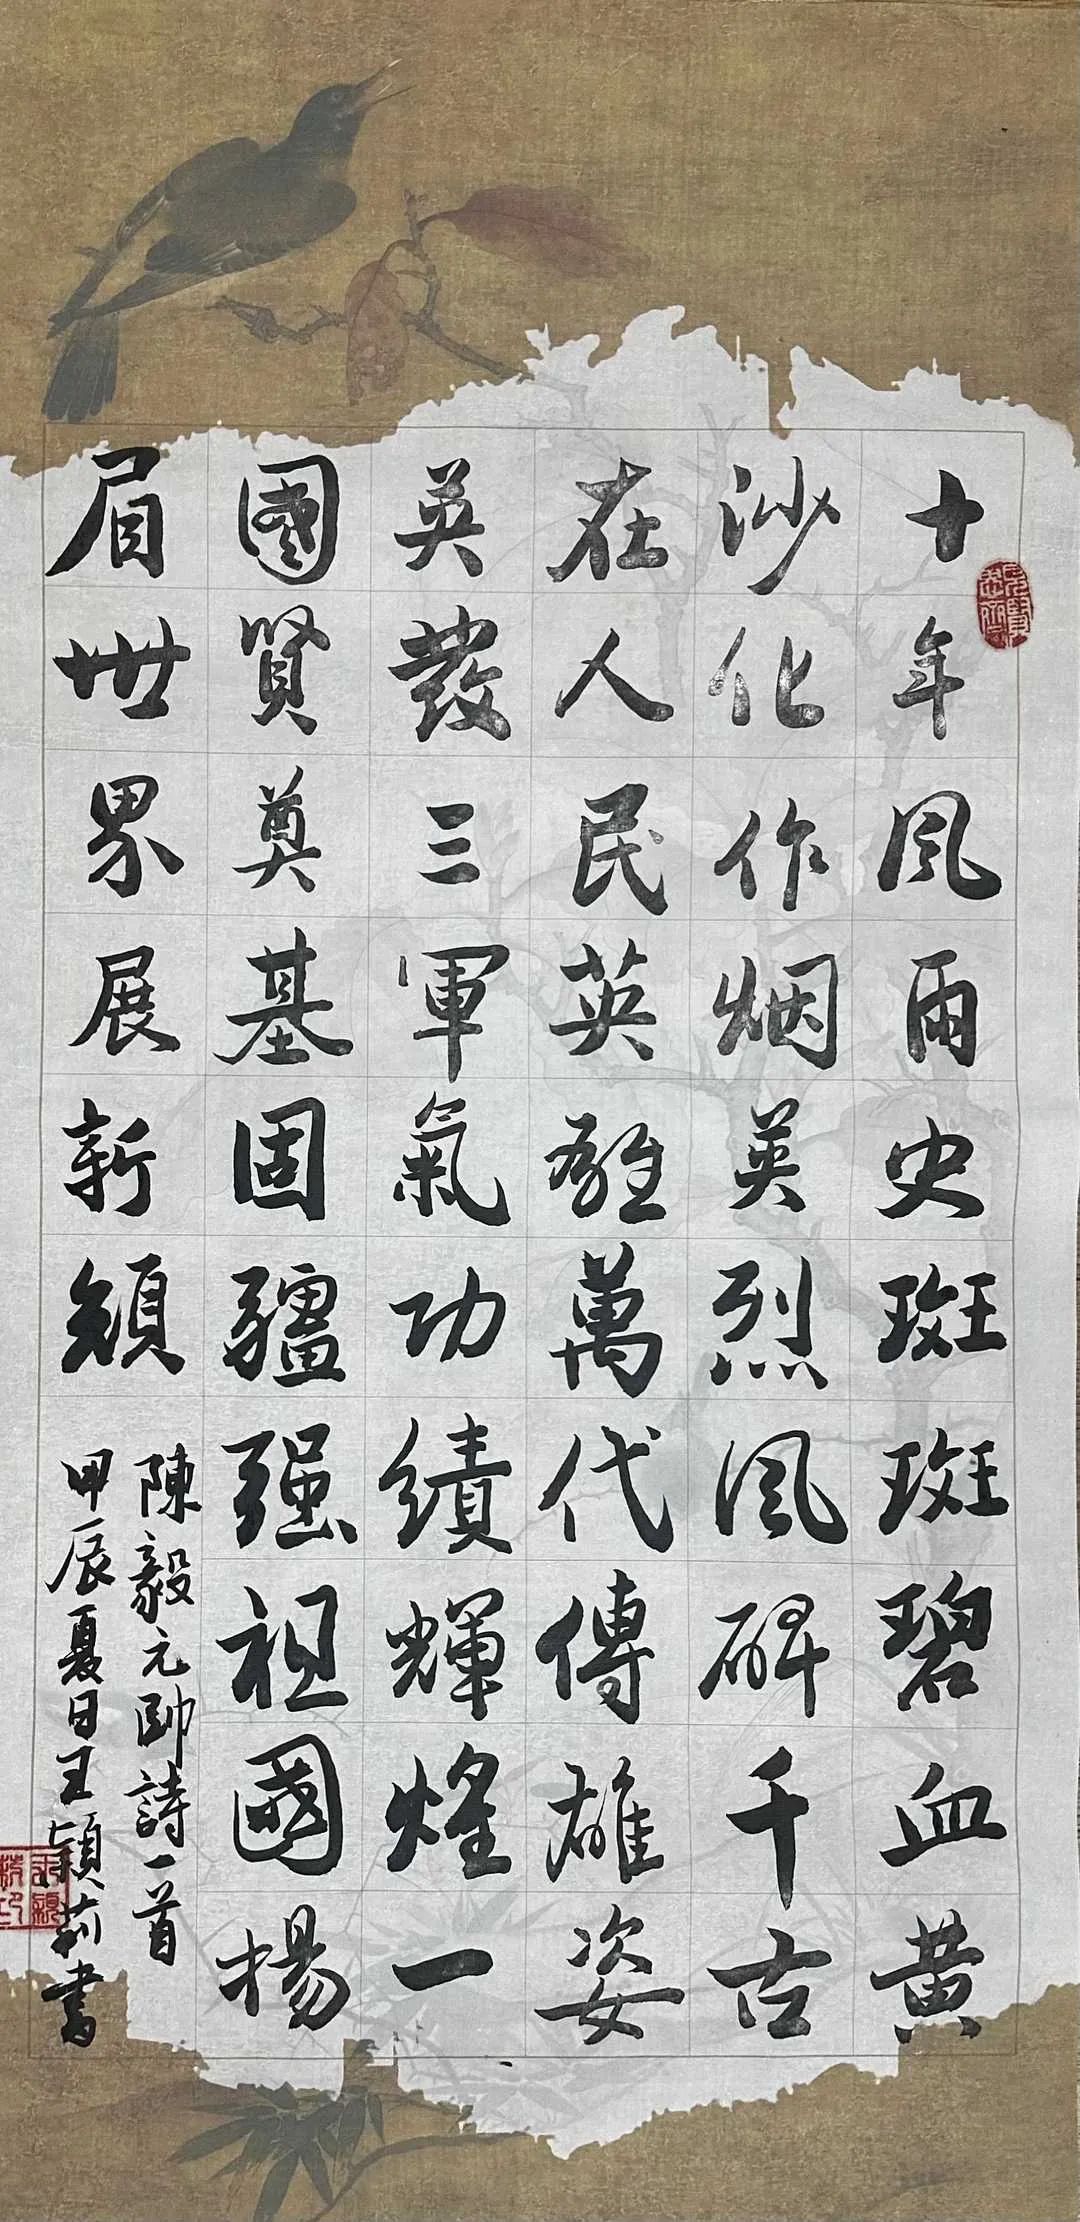 十年風雨史斑斑碧血黄
沙化作烟英烈風碑千古
在人民英雄萬代傳雄姿
英發三軍氣功績輝煌一
國賢奠基固疆强祖國揚
眉世界展新顔
陳毅元帥詩一首
甲辰夏日王穎莉書